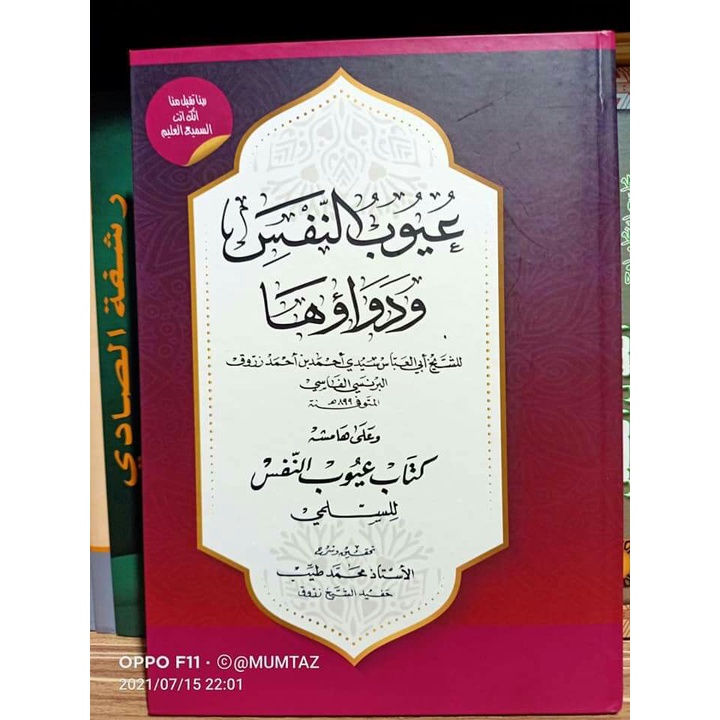 ربنا تقبل منا
انك انت
السميع العليم
عُيُوبُ النَّفْسِ
وَدَوَاؤُهَا
للشيخ أبي العباس سيدي أحمد بن أحمد زروق
البرنسي الفاسي
المتوفى سنة ٨٩٩هـ
وعلى هامشه
كتاب عيوب النفس
للسلمي
تحقيق وشرح
الأستاذ محمد طيب
حفيد الشيخ زروق
رشفة الصادي
OPPO F11 · ©@MUMTAZ
2021/07/15 22:01